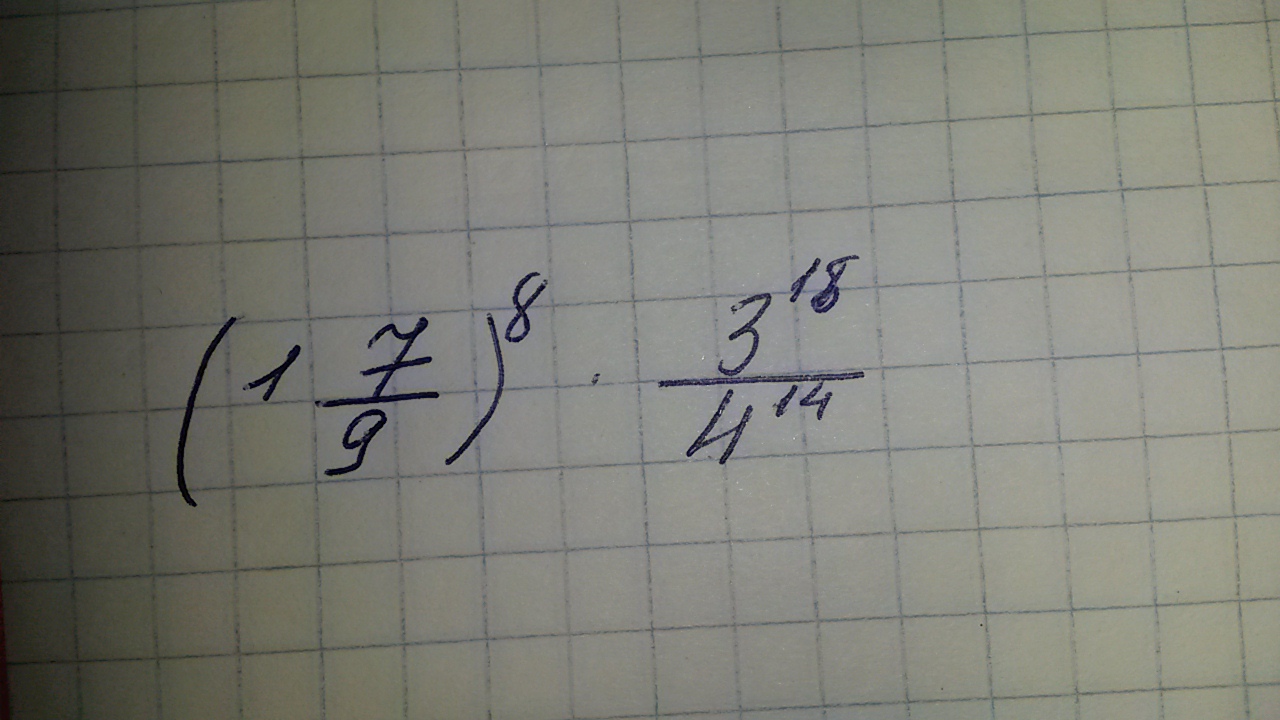 (1 7/9)^8 · 3^18/4^14